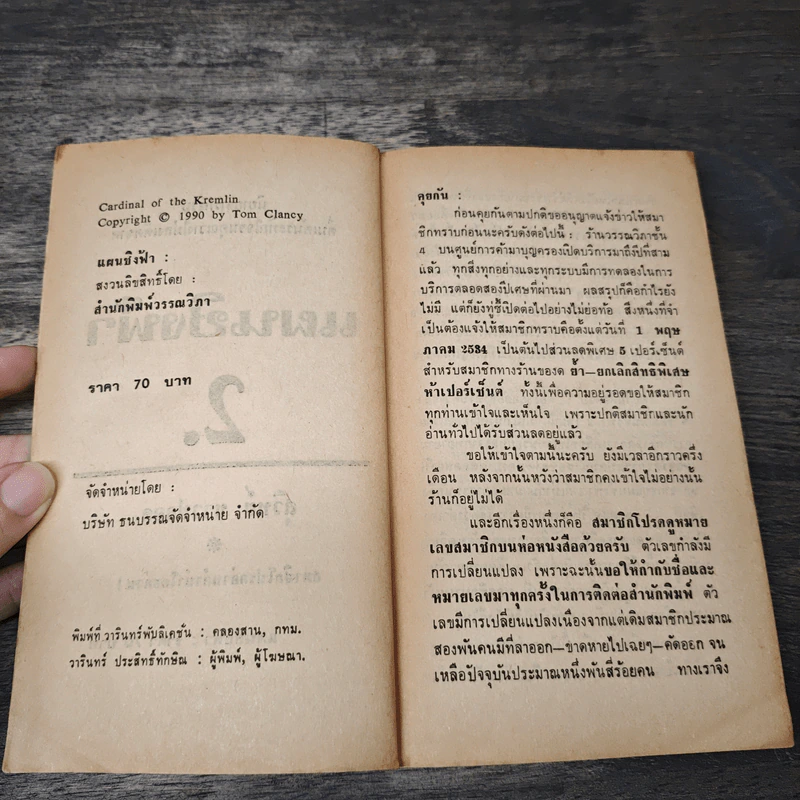 Cardinal of the Kremlin
Copyright © 1990 by Tom Clancy
แผนชิงฟ้า :
สงวนลิขสิทธิ์โดย :
สำนักพิมพ์วรรณวิภา
ราคา 70 บาท
จัดจำหน่ายโดย :
บริษัท ธนบรรณจัดจำหน่าย จำกัด
พิมพ์ที่ วารินทร์พับลิเคชั่น : คลองสาน, กทม.
วารินทร์ ประสิทธิ์ทักษิณ : ผู้พิมพ์, ผู้โฆษณา.
คุยกัน :
ก่อนคุยกันตามปกติขออนุญาตแจ้งข่าวให้สมา
ชิกทราบก่อนนะครับดังต่อไปนี้ : ร้านวรรณวิภาชั้น
4 บนศูนย์การค้ามาบุญครองเปิดบริการมาถึงปีที่สาม
แล้ว ทุกสิ่งทุกอย่างและทุกระบบมีการทดลองในการ
บริการตลอดสองปีเศษที่ผ่านมา ผลสรุปก็คือกำไรยัง
ไม่มี แต่ก็ยังทู่ซี้เปิดต่อไปอย่างไม่ย่อท้อ สิ่งหนึ่งที่จำ
เป็นต้องแจ้งให้สมาชิกทราบคือตั้งแต่วันที่ 1 พฤษ
ภาคม 2534 เป็นต้นไปส่วนลดพิเศษ 5 เปอร์เซ็นต์
สำหรับสมาชิกทางร้านของด ย้ำ–ยกเลิกสิทธิพิเศษ
ห้าเปอร์เซ็นต์ ทั้งนี้เพื่อความอยู่รอดขอให้สมาชิก
ทุกท่านเข้าใจและเห็นใจ เพราะปกติสมาชิกและนัก
อ่านทั่วไปได้รับส่วนลดอยู่แล้ว
ขอให้เข้าใจตามนี้นะครับ ยังมีเวลาอีกราวครึ่ง
เดือน หลังจากนั้นหวังว่าสมาชิกคงเข้าใจไม่อย่างนั้น
ร้านก็อยู่ไม่ได้
และอีกเรื่องหนึ่งก็คือ สมาชิกโปรดดูหมาย
เลขสมาชิกบนห่อหนังสือด้วยครับ ตัวเลขกำลังมี
การเปลี่ยนแปลง เพราะฉะนั้นขอให้กำกับชื่อและ
หมายเลขมาทุกครั้งในการติดต่อสำนักพิมพ์ ตัว
เลขมีการเปลี่ยนแปลงเนื่องจากแต่เดิมสมาชิกประมาณ
สองพันคนมีที่ลาออก–ขาดหายไปเฉยๆ–คัดออก จน
เหลือปัจจุบันประมาณหนึ่งพันสี่ร้อยคน ทางเราจึง